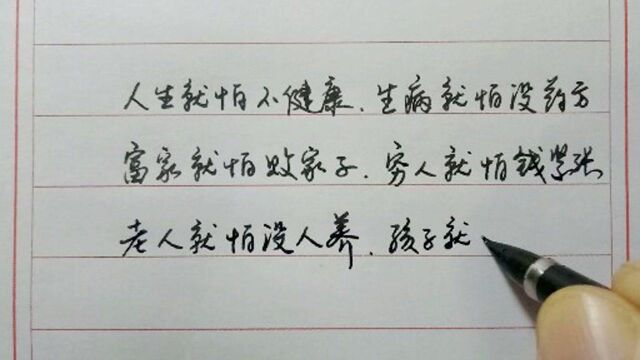 人生就怕不健康.生病就怕没药方
富家就怕败家子.穷人就怕钱紧张
老人就怕没人养.孩子就